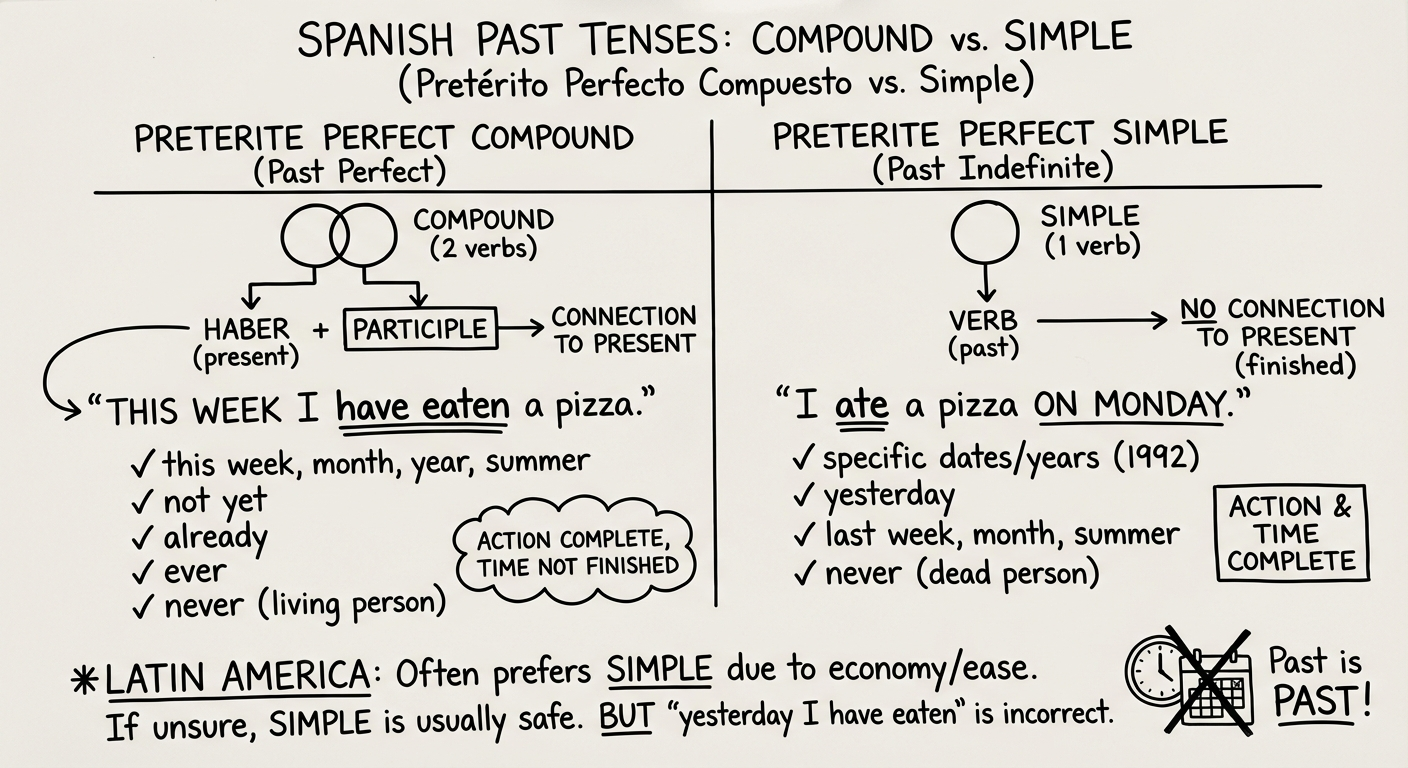 SPANISH PAST TENSES: COMPOUND vs. SIMPLE
(Pretérito Perfecto Compuesto vs. Simple)
PRETERITE PERFECT COMPOUND
(Past Perfect)
COMPOUND
(2 verbs)
HABER + PARTICIPLE
(present)
CONNECTION
TO PRESENT
"THIS WEEK I have eaten a pizza."
✓ this week, month, year, summer
✓ not yet
✓ already
✓ ever
✓ never (living person)
ACTION COMPLETE,
TIME NOT FINISHED
PRETERITE PERFECT SIMPLE
(Past Indefinite)
SIMPLE
(1 verb)
VERB
(past)
NO CONNECTION
TO PRESENT
(finished)
"I ate a pizza ON MONDAY."
✓ specific dates/years (1992)
✓ yesterday
✓ last week, month, summer
✓ never (dead person)
ACTION &
TIME
COMPLETE
*LATIN AMERICA: Often prefers SIMPLE due to economy/ease.
If unsure, SIMPLE is usually safe. BUT "yesterday I have eaten" is incorrect.
Past is
PAST!